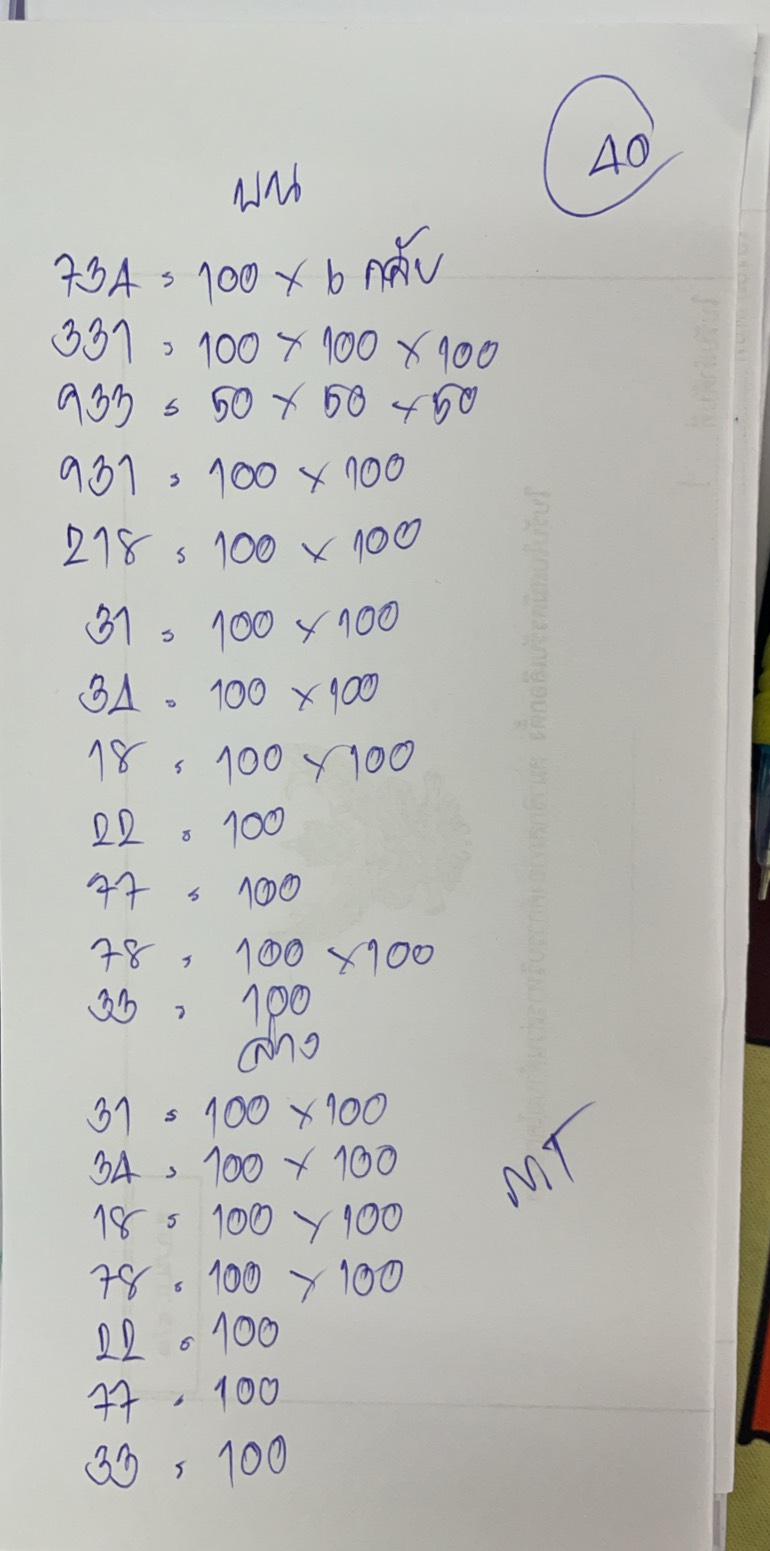 40
บน
734 = 100 × 6 กลับ
331 = 100 × 100 × 100
933 = 50 × 50 × 50
931 = 100 × 100
218 = 100 × 100
31 = 100 × 100
34 = 100 × 100
18 = 100 × 100
22 = 100
77 = 100
78 = 100 × 100
33 = 100
ล่าง
31 = 100 × 100
34 = 100 × 100
MT
18 = 100 × 100
78 = 100 × 100
22 = 100
77 = 100
33 = 100